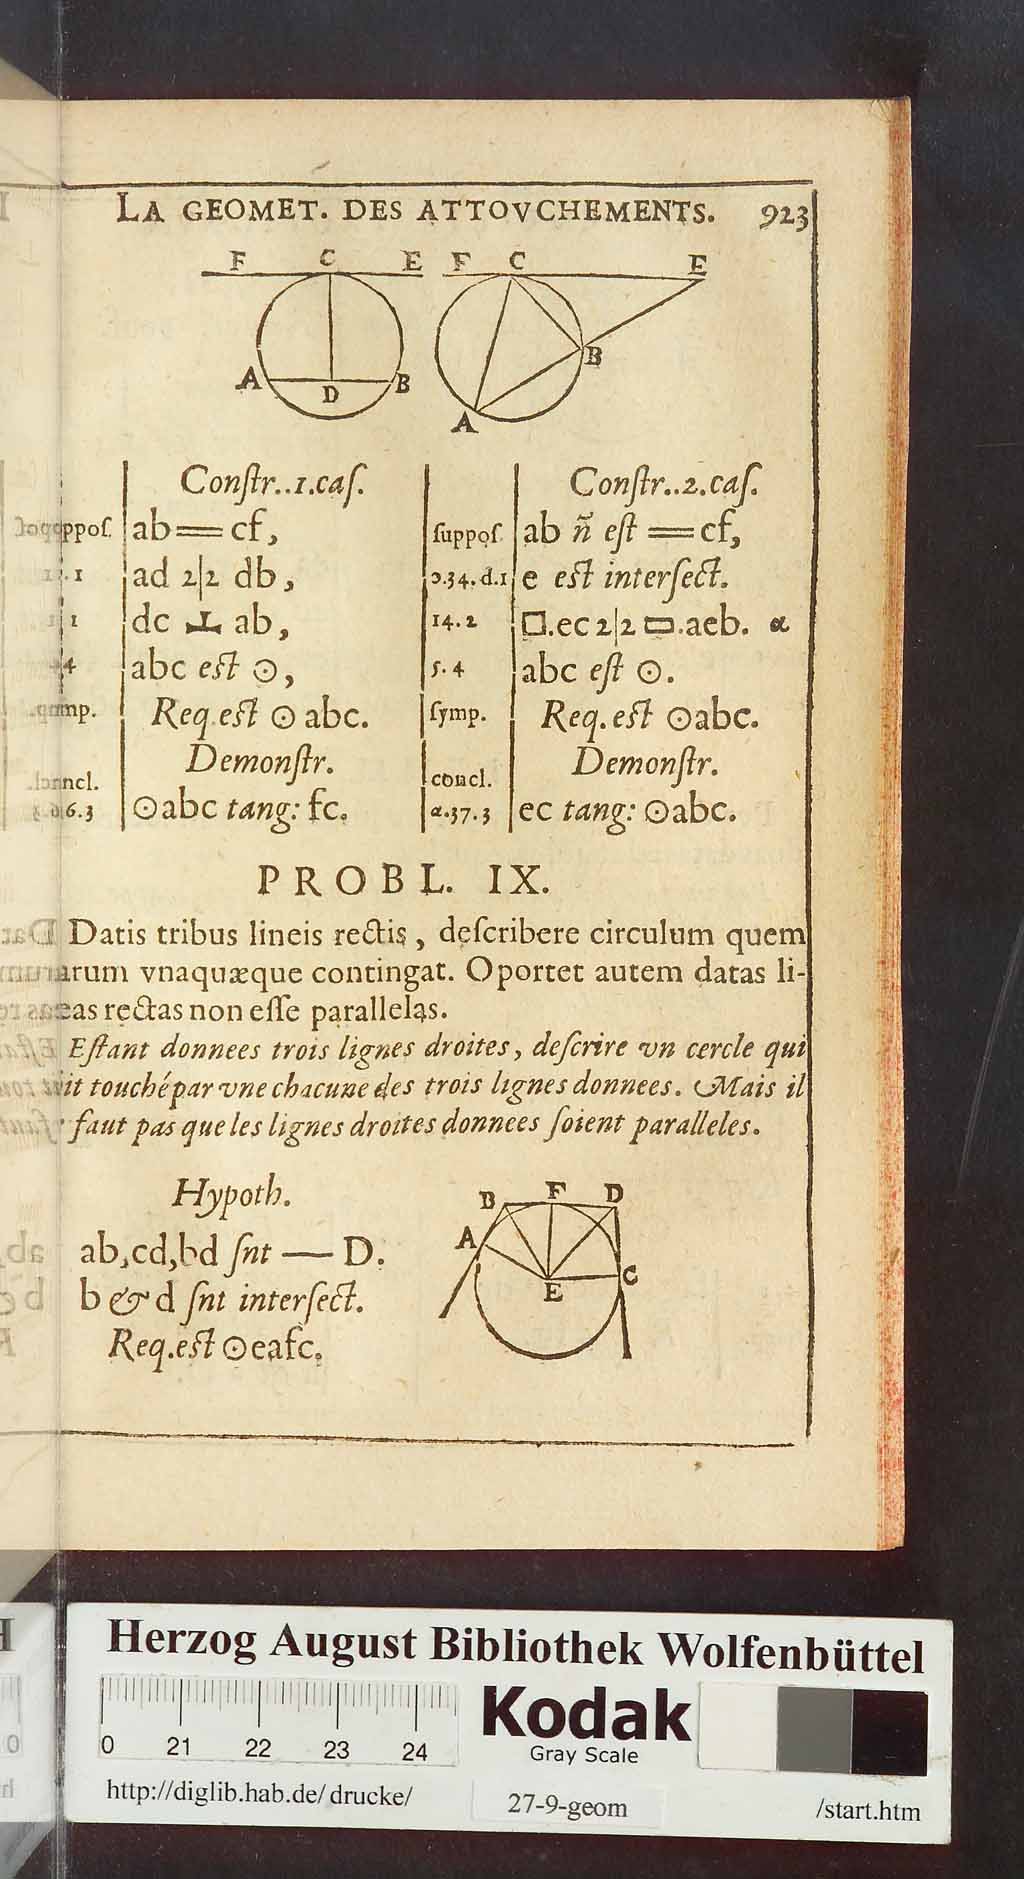 LA GEOMET. DES ATTOVCHEMENTS. 923
F C E F C E
A D B B
A
Conſtr..1.caſ.
ppoſ. ab == cf,
1 ad 2|2 db,
1 dc ⊥ ab,
4 abc est ⊙,
mp. Req.est ⊙ abc.
Demonſtr.
ncl.
6.3 ⊙abc tang: fc.
Conſtr..2.caſ.
ſuppoſ. ab n̄ est == cf,
2.34.d.1 e est interſect.
14.2 □.ec 2|2 ▭.aeb. α
5.4 abc est ⊙.
ſymp. Req. est ⊙abc.
Demonſtr.
concl.
α.37.3 ec tang: ⊙abc.
PROBL. IX.
Datis tribus lineis rectis, deſcribere circulum quem
arum vnaquæque contingat. Oportet autem datas li-
eas rectas non eſſe parallelas.
Eſtant donnees trois lignes droites, deſcrire vn cercle qui
it touché par vne chacune des trois lignes donnees. Mais il
faut pas que les lignes droites donnees ſoient paralleles.
Hypoth.
ab,cd,bd ſnt — D.
b & d ſnt interſect.
Req.est ⊙eafc.
B F D
A
E C
Herzog August Bibliothek Wolfenbüttel
0 21 22 23 24
Kodak
Gray Scale
http://diglib.hab.de/drucke/ 27-9-geom /start.htm